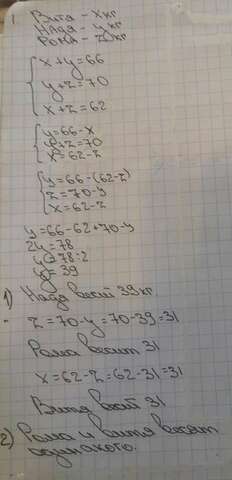 1. Витя - x кг
Надя - y кг
Рома - z кг
x + y = 66
y + z = 70
x + z = 62
y = 66 - x
y + z = 70
x = 62 - z
y = 66 - (62 - z)
z = 70 - y
x = 62 - z
y = 66 - 62 + 70 - y
2y = 78
y = 78 : 2
y = 39
1) Надя весит 39 кг
z = 70 - y = 70 - 39 = 31
Рома весит 31
x = 62 - z = 62 - 31 = 31
Витя весит 31
2) Рома и Витя весят
одинаково.